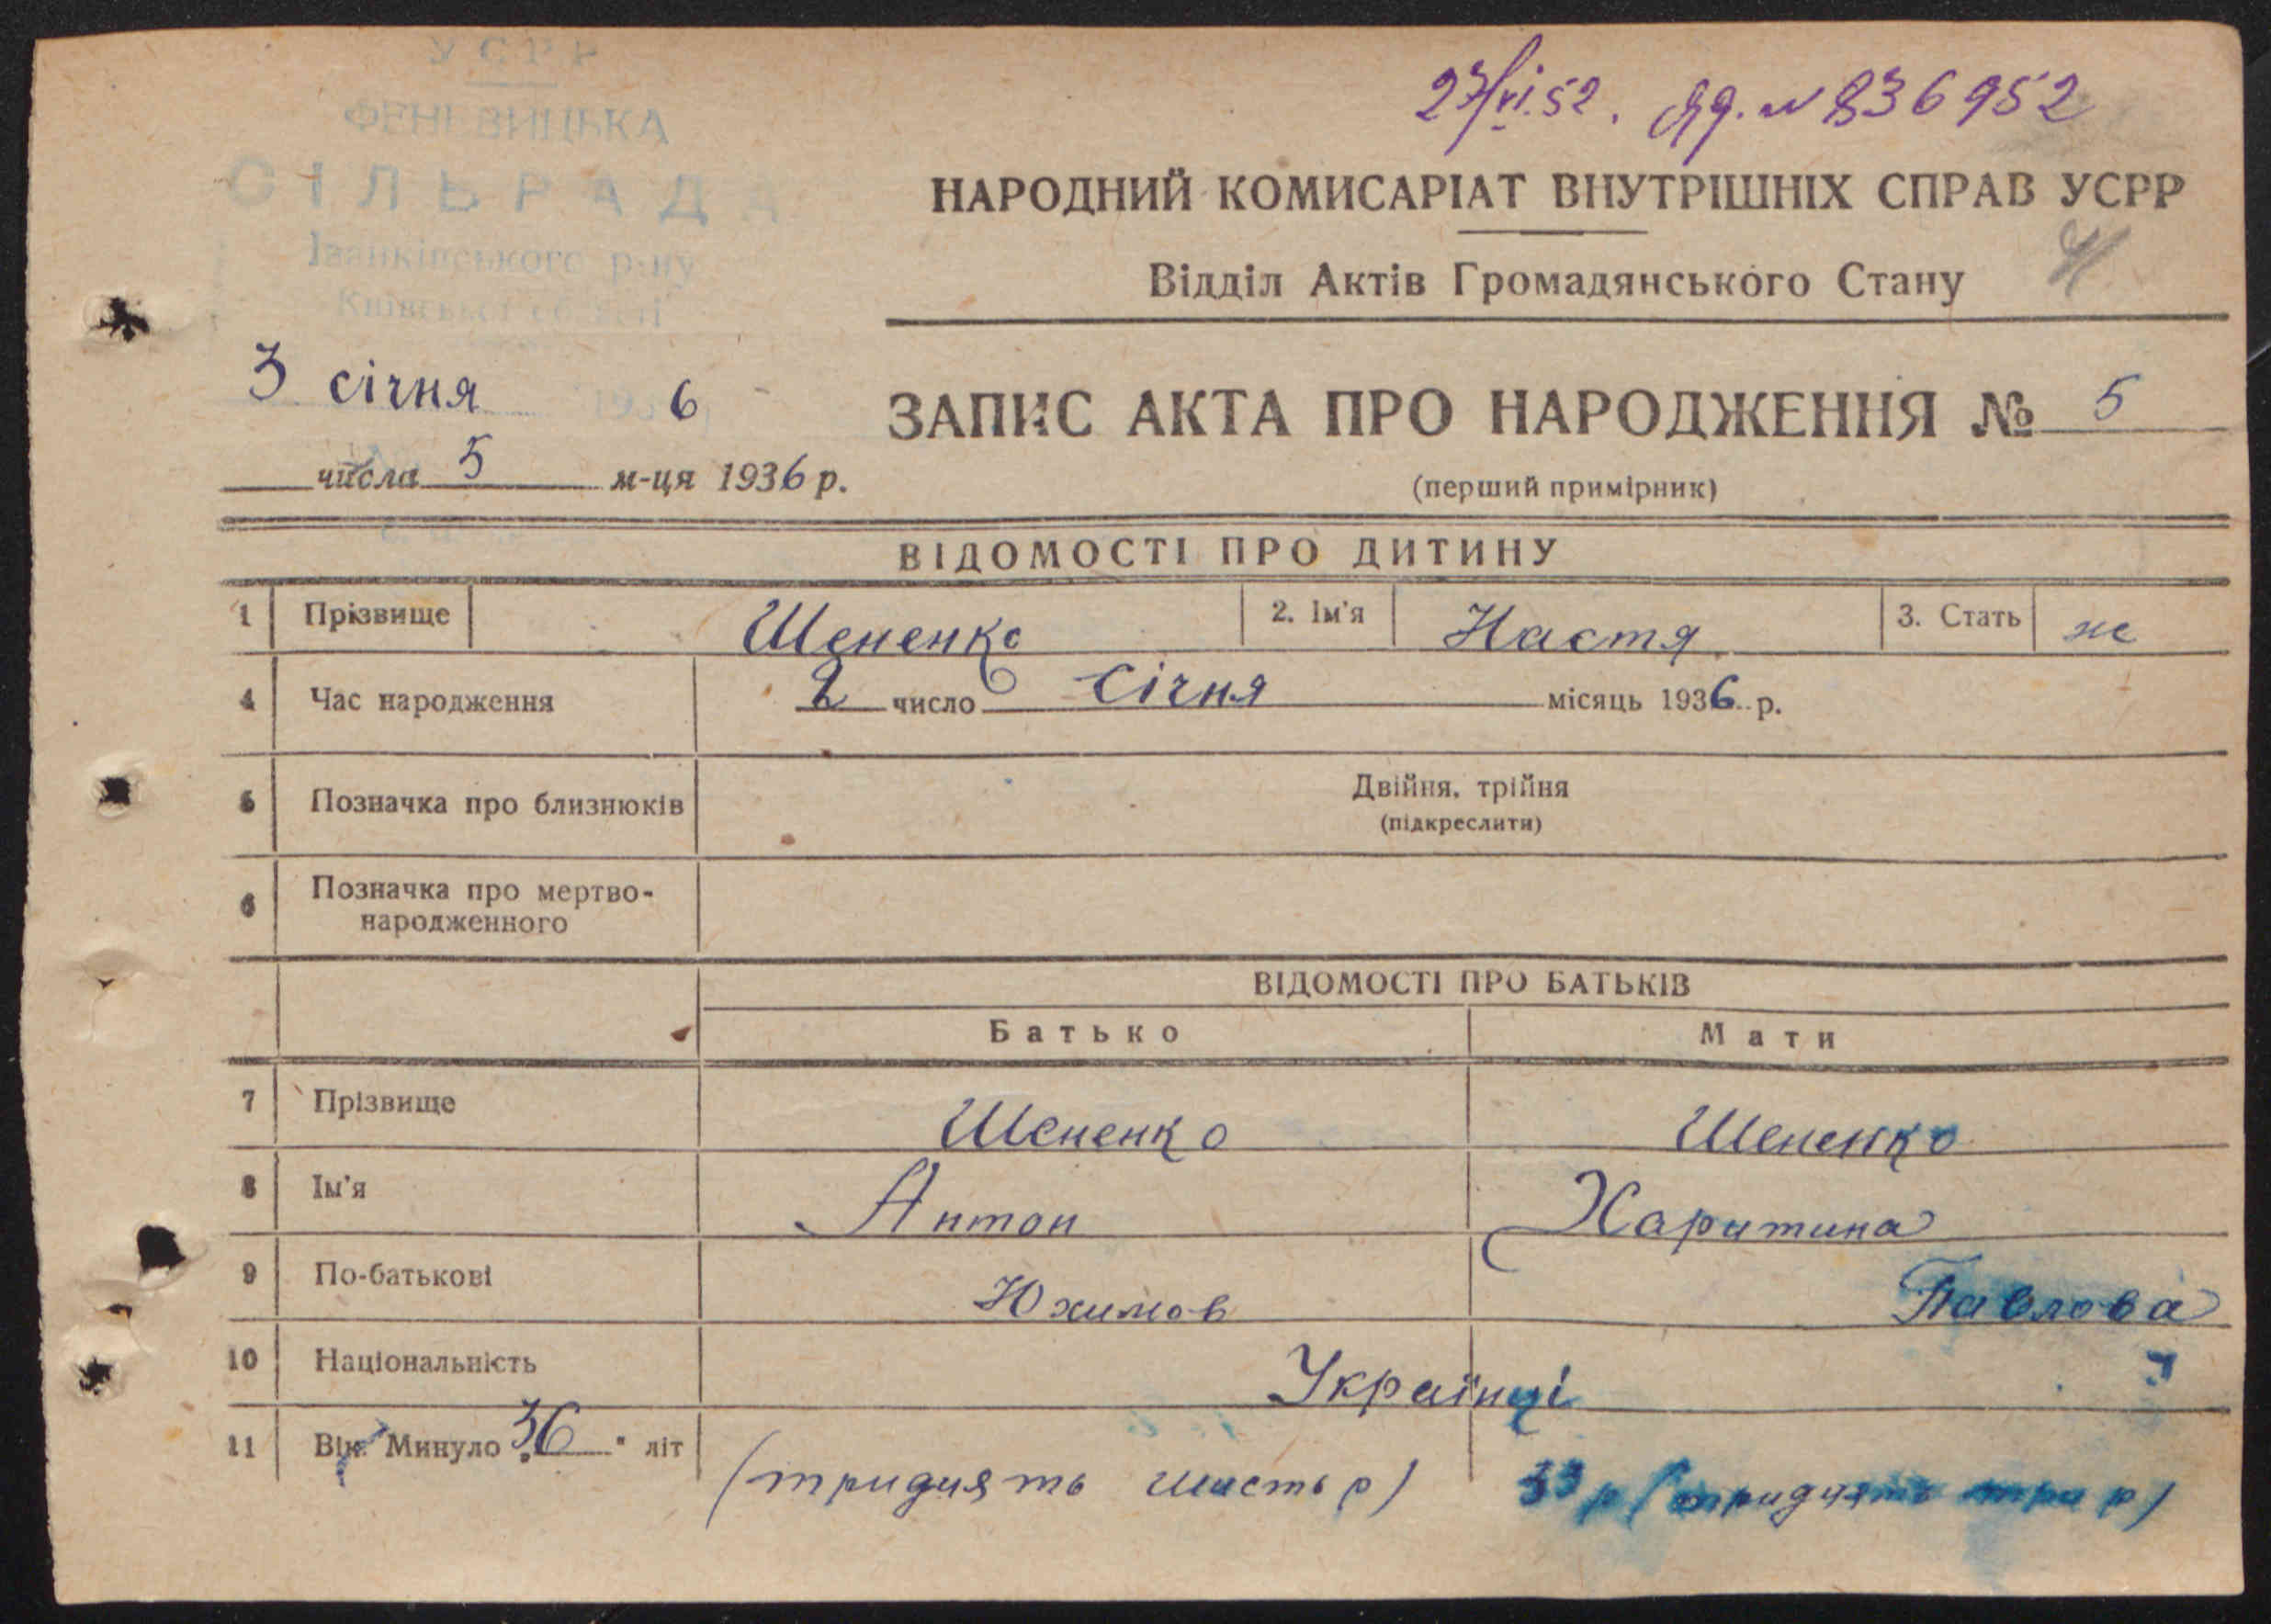 УСРР
ФЕНЕВИЦЬКА
СІЛЬРАДА
Іванківського р-ну
Київської області
27/VI.52. № 836952
НАРОДНИЙ КОМИСАРІАТ ВНУТРІШНІХ СПРАВ УСРР
Відділ Актів Громадянського Стану
3 січня 1936
ЗАПИС АКТА ПРО НАРОДЖЕННЯ № 5
числа 5 м-ця 1936 р.
(перший примірник)
ВІДОМОСТІ ПРО ДИТИНУ
1 Прізвище Шененко 2. Ім'я Настя 3. Стать ж
4 Час народження 2 число Січня місяць 1936 р.
5 Позначка про близнюків Двійня, трійня
(підкреслити)
6 Позначка про мертво-
народженного
ВІДОМОСТІ ПРО БАТЬКІВ
Батько Мати
7 Прізвище Шененко Шененко
8 Ім'я Антон Харитина
9 По-батькові Юхимов Павлова
10 Національність Українці
11 Вік. Минуло 36 літ (тридцять шість р) 33 р (тридцять три р)